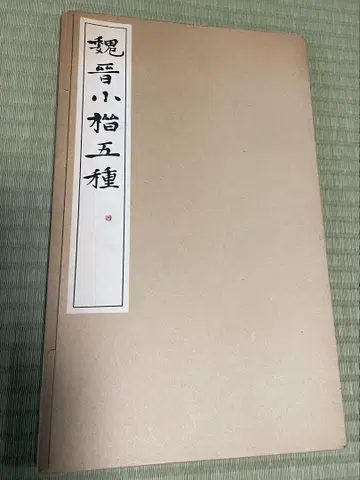 魏晉小楷五種